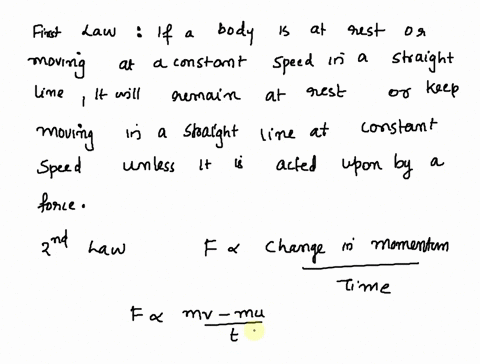 First Law : If a body is at rest or
moving at a constant speed in a straight
line, it will remain at rest or keep
moving in a straight line at constant
speed unless it is acted upon by a
force.
2nd Law F ∝ Change in momentum
Time
F ∝ mv - mu
t